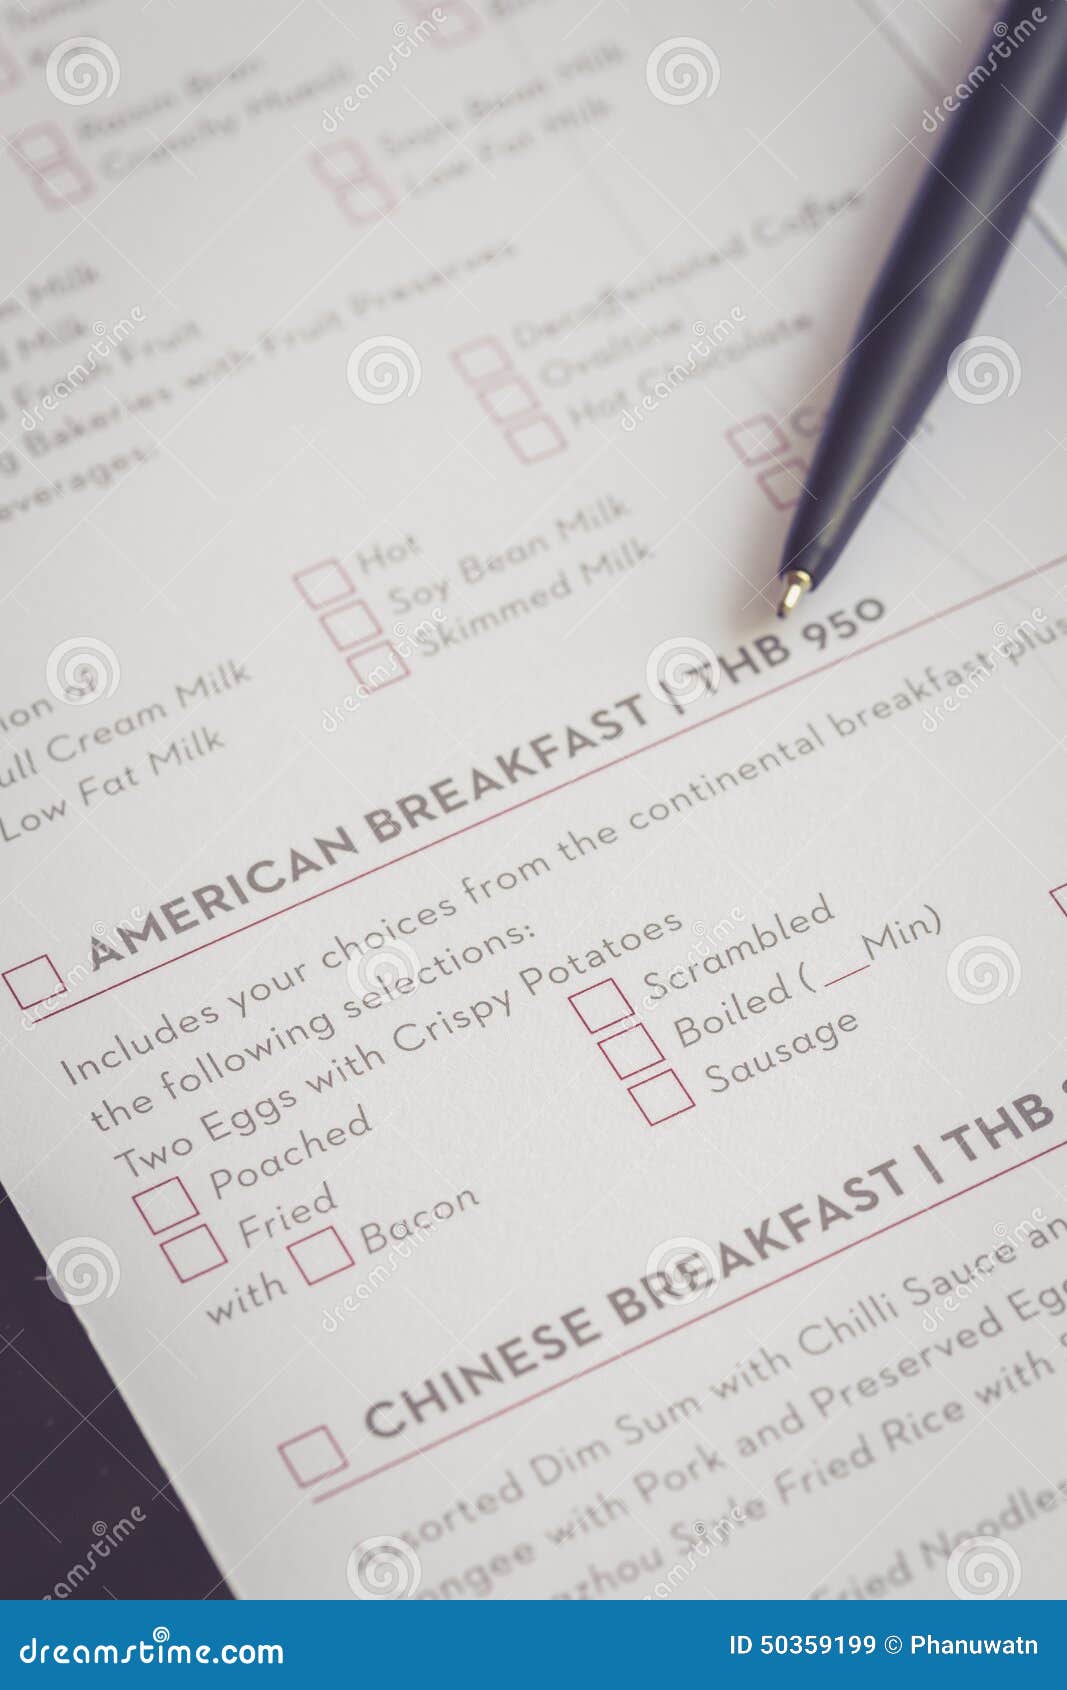 Raisin Bran
Crunchy Muesli
Soya Bean Milk
Low Fat Milk
Milk
Milk
Fresh Fruit
Bakeries with Fruit Preserves
everages:
Decaffeinated Coffee
Ovaltine
Hot Chocolate
Hot
Soy Bean Milk
Skimmed Milk
ion of
ull Cream Milk
Low Fat Milk
AMERICAN BREAKFAST | THB 950
Includes your choices from the continental breakfast plus
the following selections:
Two Eggs with Crispy Potatoes
Poached
Scrambled
Fried
Boiled ( __Min)
with Bacon
Sausage
CHINESE BREAKFAST | THB
Assorted Dim Sum with Chilli Sauce an
ongee with Pork and Preserved Egg
gzhou Style Fried Rice with
Fried Noodles
dreamstime.com
ID 50359199 © Phanuwatn